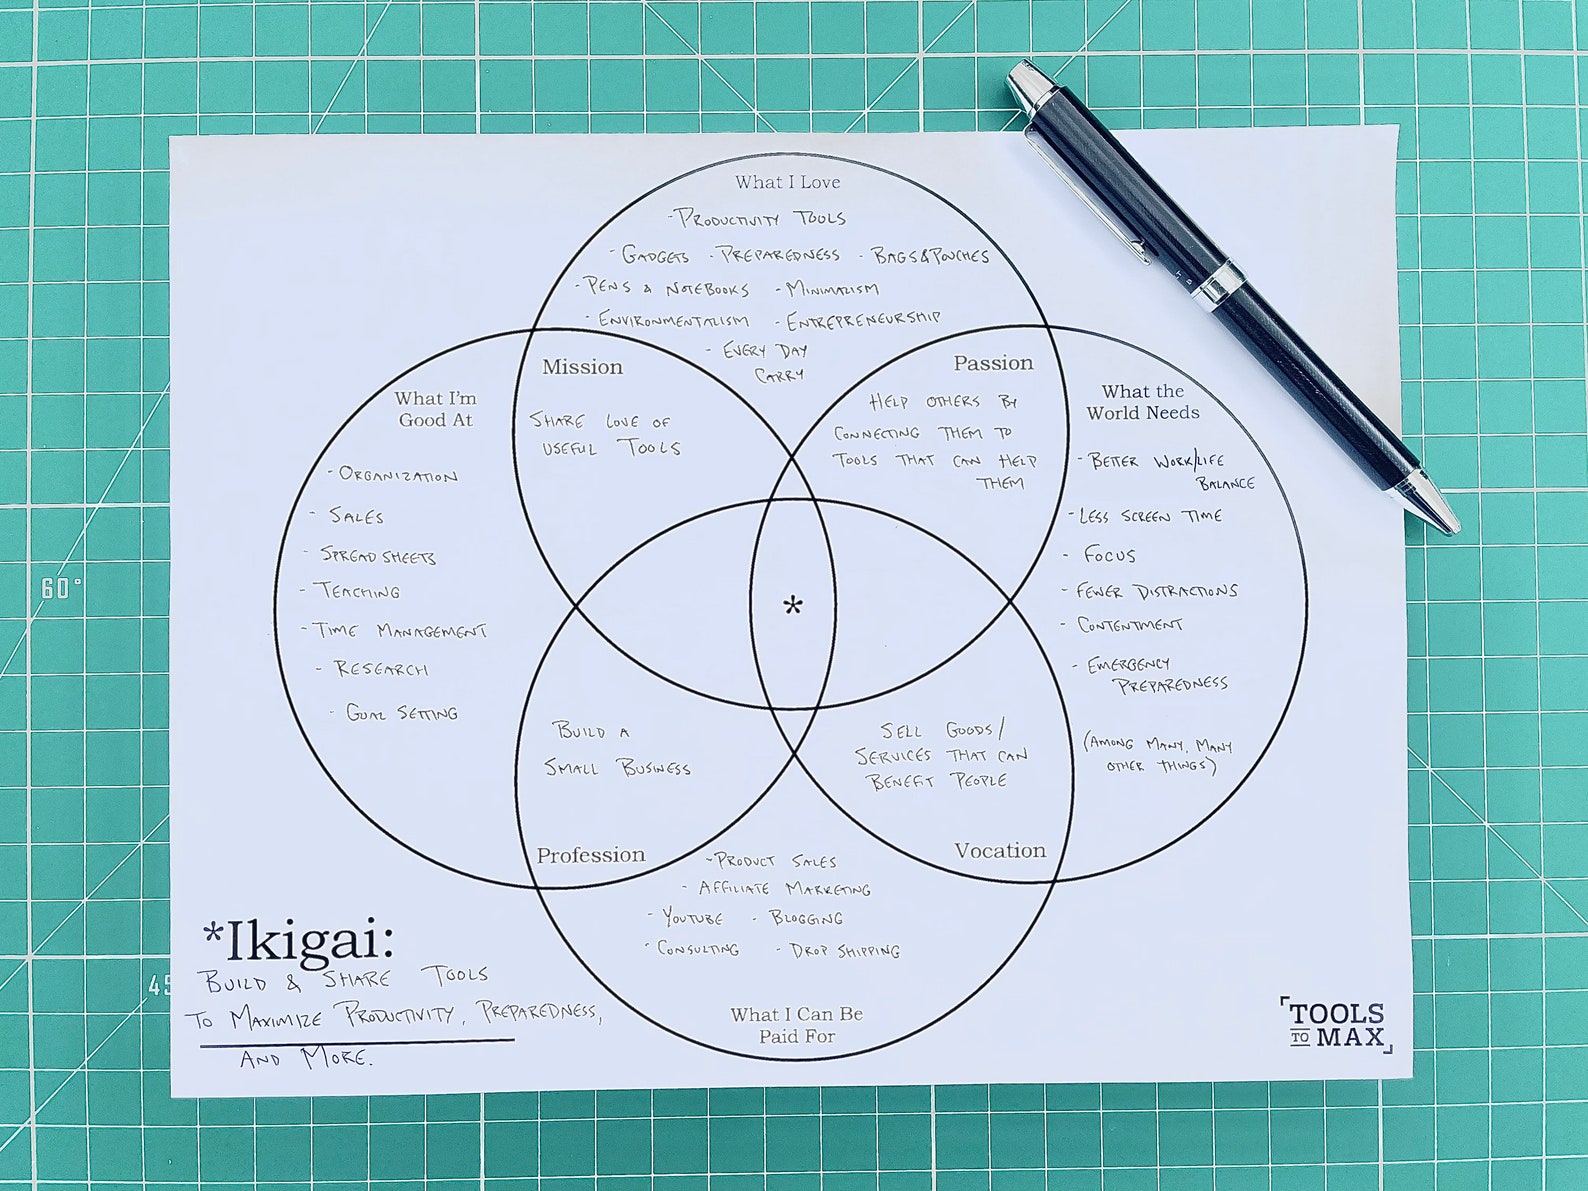 What I Love
- PRODUCTIVITY TOOLS
- GADGETS - PREPAREDNESS - BAGS & POUCHES
- PENS & NOTEBOOKS - MINIMALISM
- ENVIRONMENTALISM - ENTREPRENEURSHIP
- EVERY DAY
CARRY
Mission
SHARE LOVE OF
USEFUL TOOLS
Passion
HELP OTHERS BY
CONNECTING THEM TO
TOOLS THAT CAN HELP
THEM
What I'm
Good At
- ORGANIZATION
- SALES
- SPREADSHEETS
- TEACHING
- TIME MANAGEMENT
- RESEARCH
- GOAL SETTING
What the
World Needs
- BETTER WORK/LIFE
BALANCE
- LESS SCREEN TIME
- FOCUS
- FEWER DISTRACTIONS
- CONTENTMENT
- EMERGENCY
PREPAREDNESS
(AMONG MANY, MANY
OTHER THINGS)
*
BUILD A
SMALL BUSINESS
Profession
SELL GOODS/
SERVICES THAT CAN
BENEFIT PEOPLE
Vocation
- PRODUCT SALES
- AFFILIATE MARKETING
- YOUTUBE - BLOGGING
- CONSULTING - DROP SHIPPING
What I Can Be
Paid For
*Ikigai:
BUILD & SHARE TOOLS
TO MAXIMIZE PRODUCTIVITY, PREPAREDNESS,
AND MORE.
TOOLS
TO MAX
60°
45